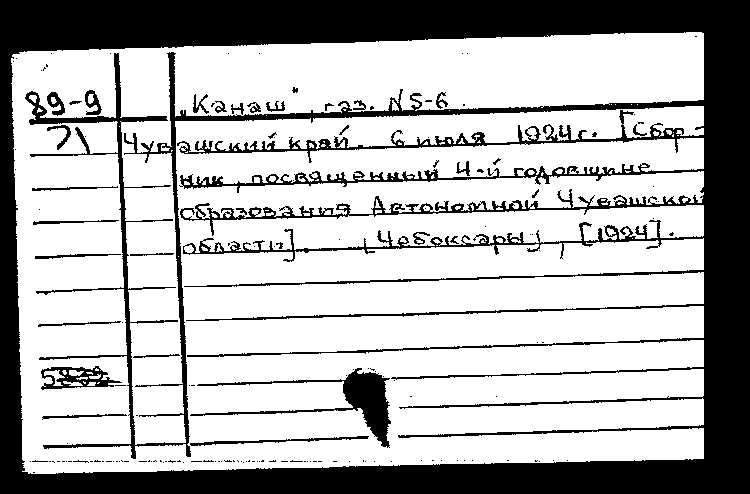 89-9 "Канаш", газ. N 5-6
71 Чувашский край. 6 июля 1924 г. [Сбор-
ник, посвященный 4-й годовщине
образования Автономной Чувашской
области]. [Чебоксары], [1924].